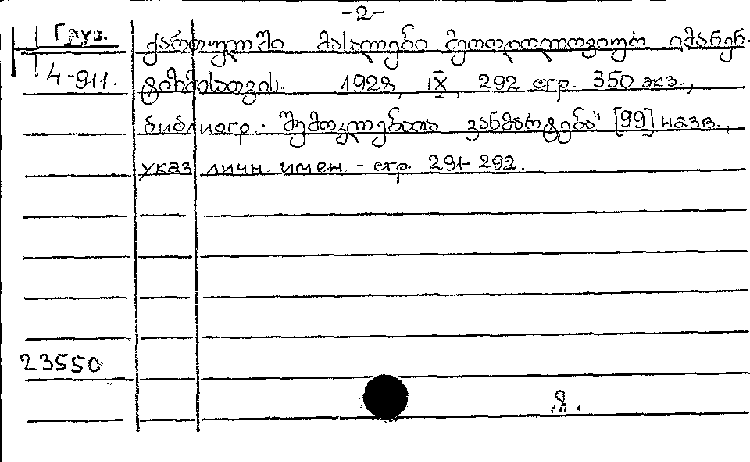 -2-
Груз. ქართულში მასალები მეთოდოლოგიურ იმანენ-
4-911. ტიზმისათვის. 1928, IX, 292 стр. 350 экз.,
библиогр. "შემოკლებათა განმარტება" [99] назв.,
указ личн. имен. - стр. 291-292.
23550